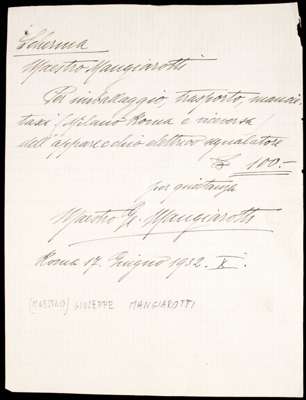 Scherma
Maestro Mangiarotti
Per imballaggio, trasporto, mancie
taxi (Milano Roma e viceversa)
dell'apparecchio elettrico segnalatore
£ 100.-
per quietanza
Maestro G. Mangiarotti
Roma 17. Giugno 1932. X.
(MAESTRO) GIUSEPPE MANGIAROTTI